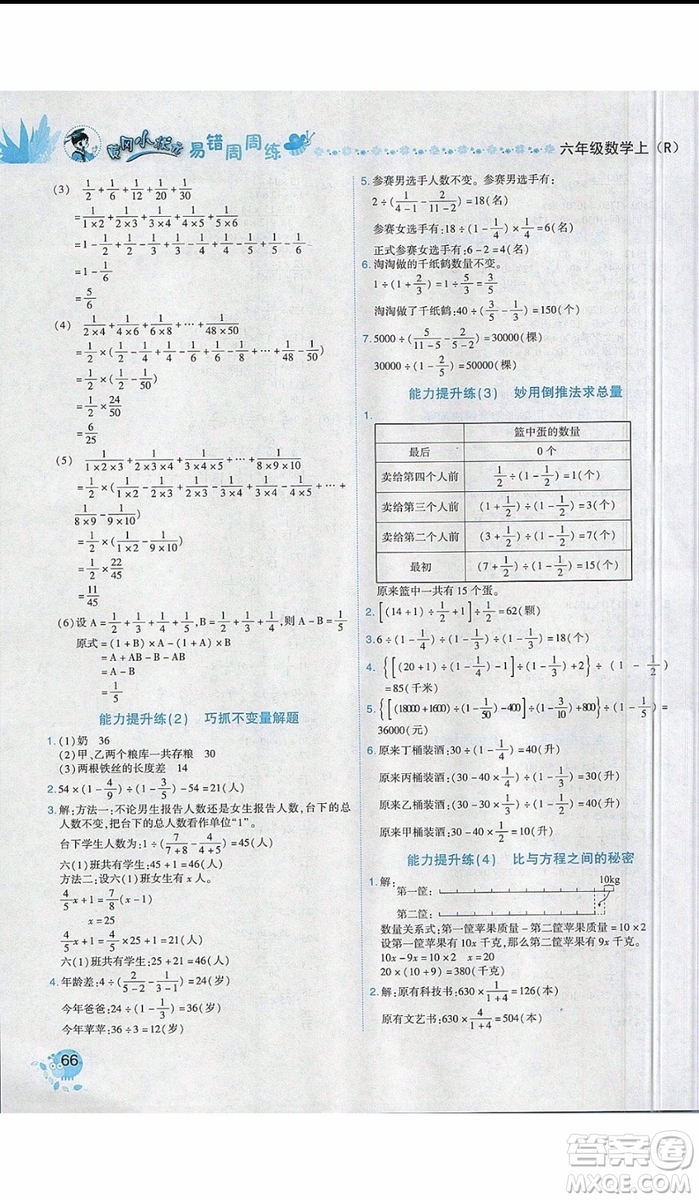 黄冈小状元 易错周周练
六年级数学上（R）
(3) 1/2+1/6+1/12+1/20+1/30
=1/(1×2)+1/(2×3)+1/(3×4)+1/(4×5)+1/(5×6)
=1-1/2+1/2-1/3+1/3-1/4+1/4-1/5+1/5-1/6
=1-1/6
=5/6
(4) 1/(2×4)+1/(4×6)+1/(6×8)+…+1/(48×50)
=1/2×(1/2-1/4+1/4-1/6+1/6-1/8+…+1/48-1/50)
=1/2×24/50
=6/25
(5) 1/(1×2×3)+1/(2×3×4)+1/(3×4×5)+…+1/(8×9×10)
=1/2×(1/(1×2)-1/(2×3)+1/(2×3)-1/(3×4)+…+
1/(8×9)-1/(9×10))
=1/2×22/45
=11/45
(6)设A=1/2+1/3+1/4+1/5,B=1/2+1/3+1/4,则A-B=1/5
原式=(1+B)×A-(1+A)×B
=A+AB-B-AB
=A-B
=1/5
能力提升练(2) 巧抓不变量解题
1.(1)奶 36
(2)甲、乙两个粮库一共存粮 30
(3)两根铁丝的长度差 14
2.54×(1-4/9)÷(1-3/5)-54=21(人)
3.解:方法一:不论男生报告人数还是女生报告人数,台下的总
人数不变,把台下的总人数看作单位“1”。
台下学生人数为:1÷(7/(7+8)-4/(4+5))=45(人)
六(1)班共有学生:45+1=46(人)
方法二:设六(1)班女生有x人。
4/5x+1=7/8(x-1)
x=25
4/5x+1=4/5×25+1=21(人)
六(1)班共有学生:25+21=46(人)
4.年龄差:4÷(2/(5-2)-1/(3-1))=24(岁)
今年爸爸:24÷(1-1/3)=36(岁)
今年苹苹:36-24=12(岁)
66
5.参赛男选手人数不变。参赛选手有:
2÷(1/(4-1)-2/(11-2))=18(名)
参赛女选手有:18÷(1-1/4)×1/4=6(名)
正式参赛女选手有:6-2=4(名)
6.淘淘做的千纸鹤数量不变。
1÷(1+2/3)=1÷5/3=3/5
淘淘做了千纸鹤:40÷(3/5-1/3)=150(只)
7.5000÷(5/(11-5)-2/(5-2))=30000(棵)
30000÷(1-2/5)=50000(棵)
能力提升练(3) 妙用倒推法求总量
1.
篮中蛋的数量
最后 0个
卖给第四个人前 1/2÷(1-1/2)=1(个)
卖给第三个人前 (1+1/2)÷(1-1/2)=3(个)
卖给第二个人前 (3+1/2)÷(1-1/2)=7(个)
最初 (7+1/2)÷(1-1/2)=15(个)
原来篮中一共有15个蛋。
2.[(14+1)÷1/2+1]÷1/2=62(颗)
3.6÷(1-1/2)÷(1-1/3)=18(只)
4.{[(20+1)÷(1-1/2)-1]÷(1-1/3)+2}÷(1-1/3)
=85(千米)
5.{[(18000+1600)÷(1-1/50)-400]÷(1-1/3)+800}÷(1-1/5)=
36000(元)
6.原来丁桶装酒:30÷(1-1/4)=40(升)
原来丙桶装酒:30÷(1-1/4)-10=30(升)
原来乙桶装酒:30÷(1-1/3)-10=35(升)
原来甲桶装酒:30÷(1-1/3)-30=15(升)
能力提升练(4) 比与方程之间的秘密
1.解:
10kg
第一筐:
第二筐:
数量关系式:第一筐苹果质量-第二筐苹果质量=10×2
设第一筐苹果有10x千克,那么第二筐苹果有9x千克。
10x-9x=10×2 x=20
20×(10+9)=380(千克)
2.解:原有科技书:630×1/(1+4)=126(本)
原有文艺书:630×4/(1+4)=504(本)
答案圈
MXQE.COM